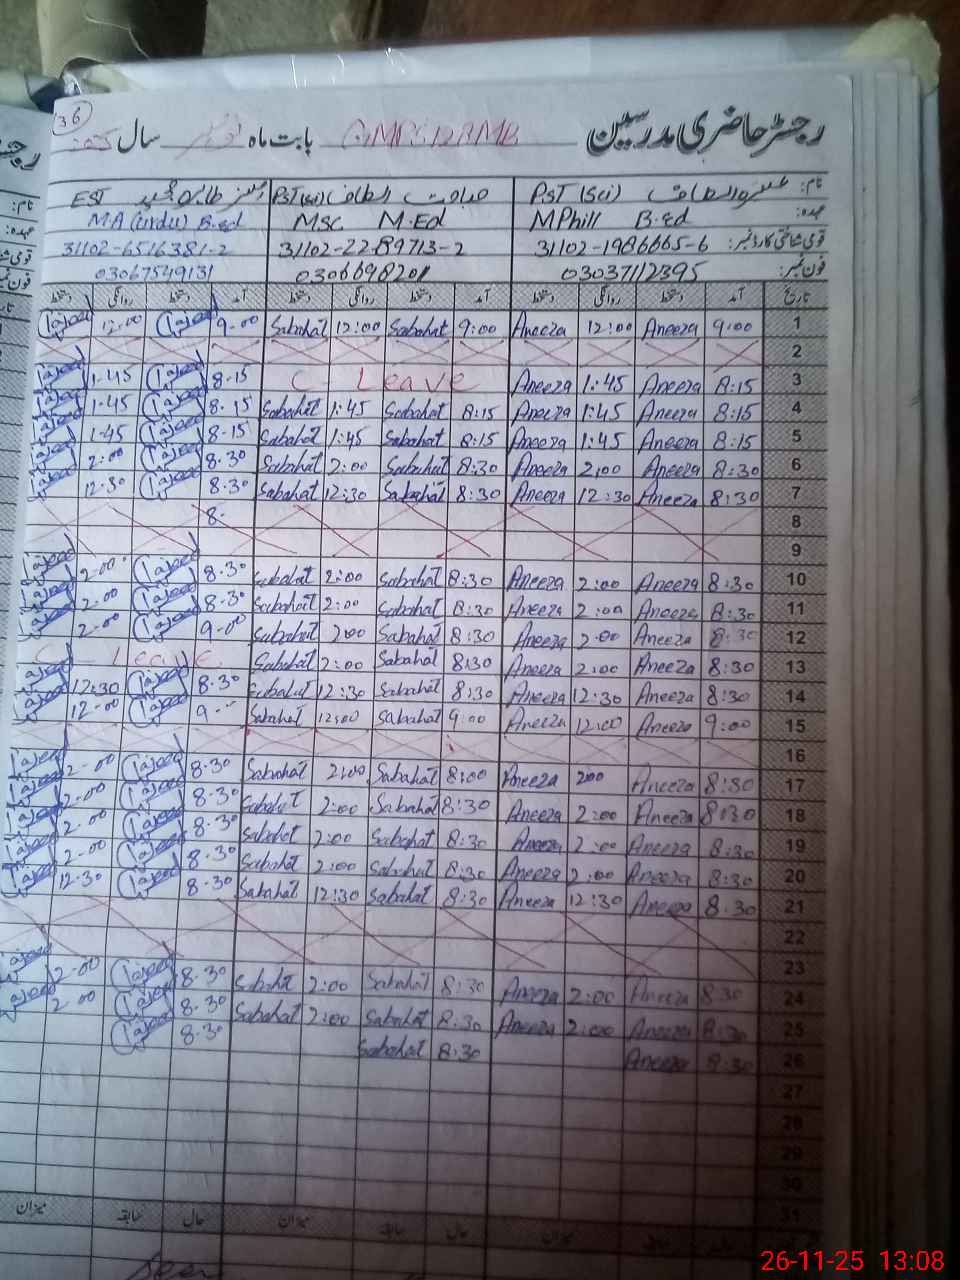 36
رجسٹر حاضری مدرسین بابت ماہ سال
نام: PST (Sci) PST (Sci) EST
عہدہ: MPhill B.ed MSc M.Ed M.A (urdu) B.ed
قومی شناختی کارڈ نمبر: 31102-1986665-6 31102-2289713-2 31102-6516381-2
فون نمبر: 03037112395 0306698201 03067549131
تاریخ آمد دستخط روانگی دستخط آمد دستخط روانگی دستخط آمد دستخط روانگی دستخط
1 9:00 Aneeza 12:00 Aneeza 9:00 Sabahat 12:00 Sabahat 9-00 12-00
2
3 8:15 Aneeza 1:45 Aneeza C - Leave 8-15 1-45
4 8:15 Aneeza 1:45 Aneeza 8:15 Sabahat 1:45 Sabahat 8-15 1-45
5 8:15 Aneeza 1:45 Aneeza 8:15 Sabahat 1:45 Sabahat 8-15 1-45
6 8:30 Aneeza 2:00 Aneeza 8:30 Sabahat 2:00 Sabahat 8.30 2-00
7 8:30 Aneeza 12:30 Aneeza 8:30 Sabahat 12:30 Sabahat 8.30 12-30
8 8-
9
10 8:30 Aneeza 2:00 Aneeza 8:30 Sabahat 2:00 Sabahat 8.30 2-00
11 8:30 Aneeza 2:00 Aneeza 8:30 Sabahat 2:00 Sabahat 8.30 2-00
12 8:30 Aneeza 2:00 Aneeza 8:30 Sabahat 2:00 Sabahat 9-00 2-00
13 8:30 Aneeza 2:00 Aneeza 8:30 Sabahat 2:00 Sabahat C - Leave
14 8:30 Aneeza 12:30 Aneeza 8:30 Sabahat 12:30 Sabahat 8.30 12:30
15 9:00 Aneeza 12:00 Aneeza 9:00 Sabahat 12:00 Sabahat 9-- 12-00
16
17 8:30 Aneeza 2:00 Aneeza 8:00 Sabahat 2:00 Sabahat 8.30 2-00
18 8:30 Aneeza 2:00 Aneeza 8:30 Sabahat 2:00 Sabahat 8.30 2-00
19 8:30 Aneeza 2:00 Aneeza 8:30 Sabahat 2:00 Sabahat 8.30 2-00
20 8:30 Aneeza 2:00 Aneeza 8:30 Sabahat 2:00 Sabahat 8.30 2-00
21 8:30 Aneeza 12:30 Aneeza 8:30 Sabahat 12:30 Sabahat 8.30 12.30
22
23
24 8:30 Aneeza 2:00 Aneeza 8:30 Sabahat 2:00 Sabahat 8.30 2-00
25 8:30 Aneeza 2:00 Aneeza 8:30 Sabahat 2:00 Sabahat 8.30 2-00
26 8:30 Aneeza 8:30 Sabahat 8-30
27
28
29
30
31
حال سابقہ میزان حال سابقہ میزان
Seen
26-11-25 13:08